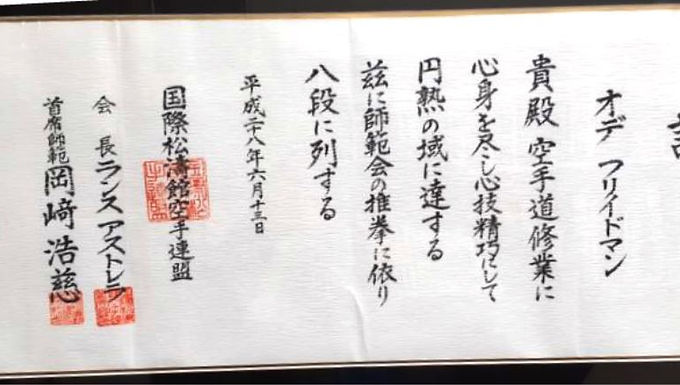 オデ フリイドマン
貴殿 空手道修業に
心身を尽し心技精巧にして
円熟の域に達する
茲に師範会の推挙に依り
八段に列する
平成二十八年六月十三日
国際松濤館空手連盟
会長 ランス アストレラ
首席師範 岡﨑浩慈